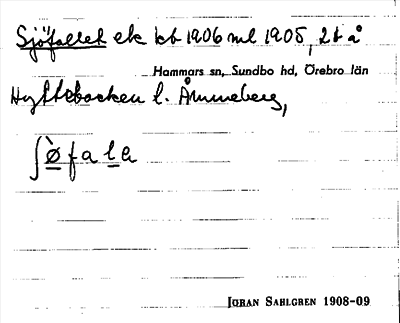 Sjöfallet ek kt 1906 ml 1905, 2 t å
Hammars sn, Sundbo hd, Örebro län
Hyttebacken l. Åmmeberg,
ʃø̀fala
JÖRAN SAHLGREN 1908-09